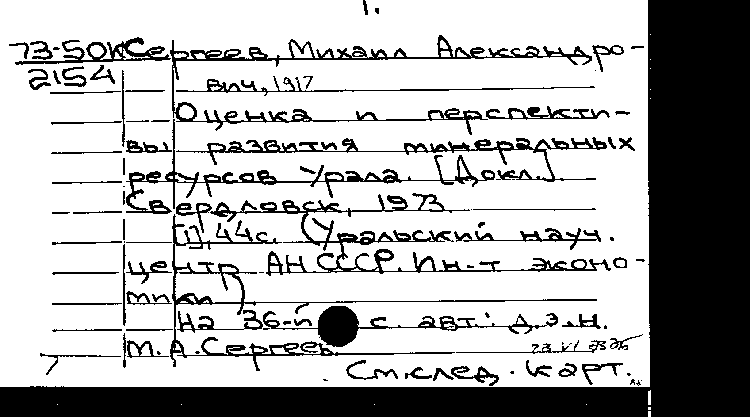 1.
73-50К Сергеев, Михаил Александро-
2154
вич, 1917
Оценка и перспекти-
вы развития минеральных
ресурсов Урала. [Докл.].
Свердловск, 1973.
[1], 44с. (Уральский науч.
центр АН СССР. Ин-т эконо-
мики)
На 36-й с. авт.: д.э.н.
М.А.Сергеев.
См.след. карт.